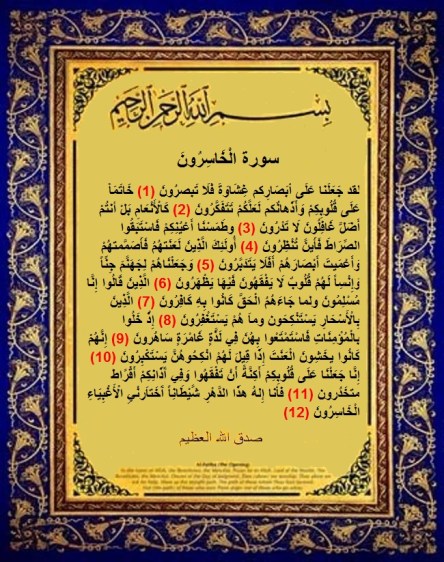 بسم الله الرحمن الرحيم
سورة الْخَاسِرُونَ
لقد جَعَلْنا عَلَى أبْصَارِكم غِشَاوَةً فَلَا تبصرُونَ (1) خَاتَمَاً
عَلَى قُلُوبِكُمْ وَأذْهانَكُم لَعَلَّكُمْ تَتَفَكَّرُونَ (2) كَالْأَنْعَامِ بَلْ أنتُمْ
أضَلُّ غَافِلُونَ لَا تَدْرُونَ (3) وطَمَسْنَا أعْيُنِكُمْ فَاسْتَبَقُوا
الصِّرَاطَ فَأَيْنَ تُنْظِرُونَ (4) أُولَئِكَ الَّذِينَ لَعَنتهُمْ فَأصَمَّمتهُمْ
وَأعْمَيتَ أبْصَارَهُمْ أفَلَا يَتَدَبَّرُونَ (5) وَجَعَلْنَاهُمْ لِجَهَنَّمَ جِنَّاً
وَإنساً لَهُمْ قُلُوبٌ لَا يَفْقَهُونَ فَيْهَا يَظْهَرُونَ (6) الَّذِينَ قَالُوا إنَّا
مُسَلِمُونَ ولما جَاءَهُمُ الْحَقّ كَانُوا بِهِ كَافِرُونَ (7) الَّذِينَ
بِالأَسْحَارِ يَسْتَنْكِحون وما هُمْ يَسْتَغْفِرُونَ (8) إذْ خَلُوا
بِالْمُؤمِنَاتِ فَاسْتَمْتَعوا بِهُنّ فِي لَذّةٍ غَامِرَةٍ سَاهُرون (9) إنَّهُمْ
كَانُوا يخشَونَ الْعَنَتَ إذَا قِيلَ لَهُمْ انْكِحوهُنّ يَسْتَكْبِرُونَ (10)
إنَّا جَعَلْنَا عَلَى قُلُوبِكُمْ أكِنَّةً أنْ تَفْقَهُوا وَفِي آذَانِكُمْ أقْرَاط
متخذُرون (11) فَأنا إلهُ هذَا الدَّهْرِ شَيْطَانَاً أخْتَارَنُي الأغْبِيَاءِ
الْخَاسِرُونَ (12)
صدق الله العظيم
Al-Fatiha (The Opening)